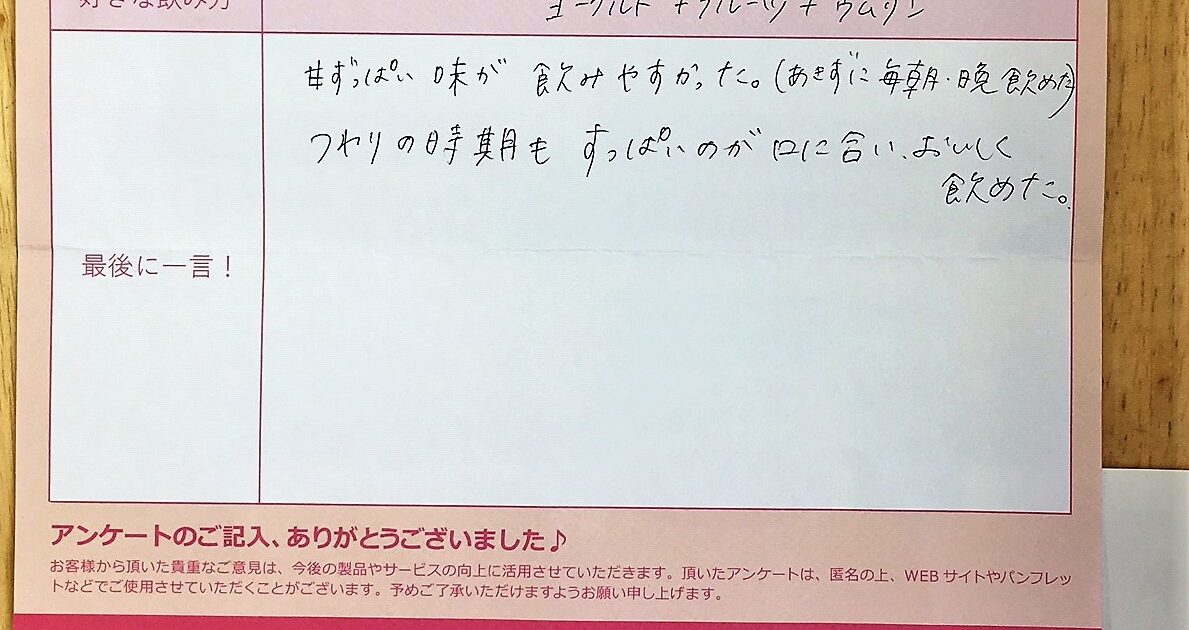 好きな飲み方
ヨーグルト + フルーツ + ウムリン
甘ずっぱい味が 飲みやすかった。(あきずに毎朝・晩飲めた)
つわりの時期も すっぱいのが口に合い、おいしく
飲めた。
最後に一言！
アンケートのご記入、ありがとうございました♪
お客様から頂いた貴重なご意見は、今後の製品やサービスの向上に活用させていただきます。頂いたアンケートは、匿名の上、WEBサイトやパンフレッ
トなどでご使用させていただくことがございます。予めご了承いただけますようお願い申し上げます。